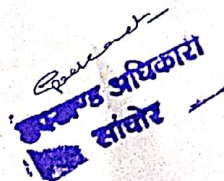 उपखण्ड अधिकारी
सांचोर